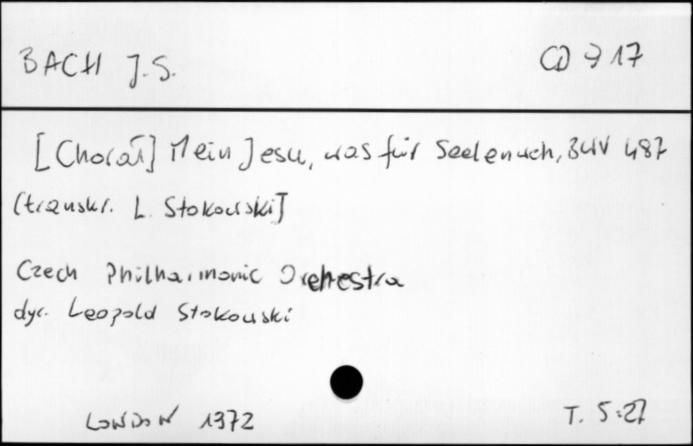 BACH J.S.
CD 917
[Chorał] Mein Jesu, was für Seelenweh, BWV 487
(transkr. L. Stokowski]
Czech Philharmonic Orchestra
dyr. Leopold Stokowski
LONDON 1972
T. 5:27